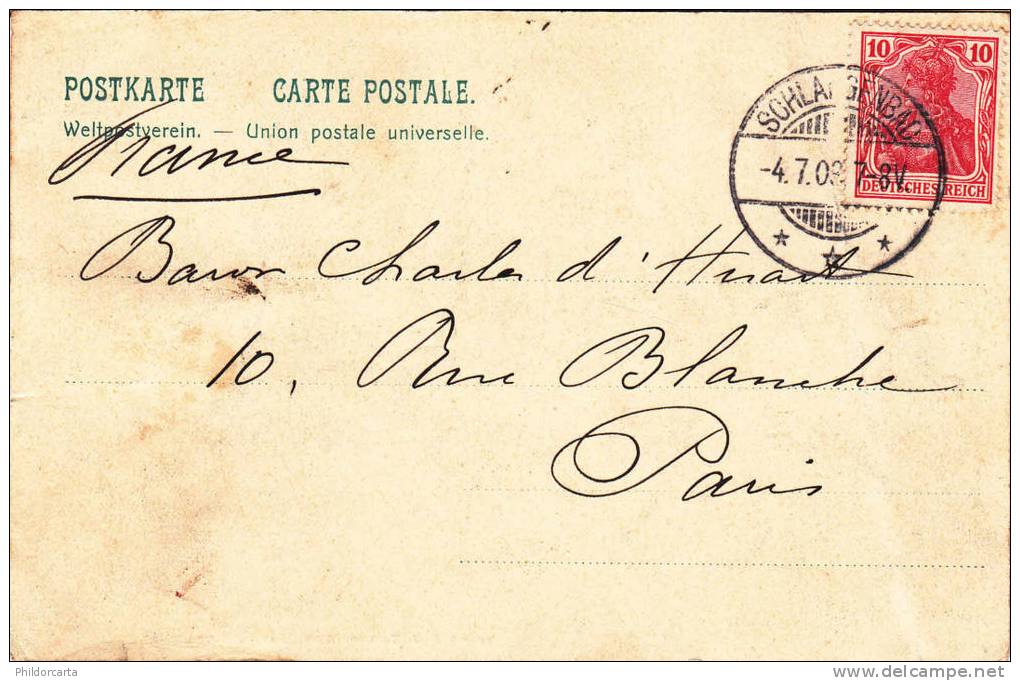 POSTKARTE CARTE POSTALE.
Weltpostverein. — Union postale universelle.
France
Baron Charles d'Huart
10, Rue Blanche
Paris
10 10
DEUTSCHES REICH
SCHLANGENBAD
-4.7.03 7-8V.
Phildorcarta
www.delcampe.net